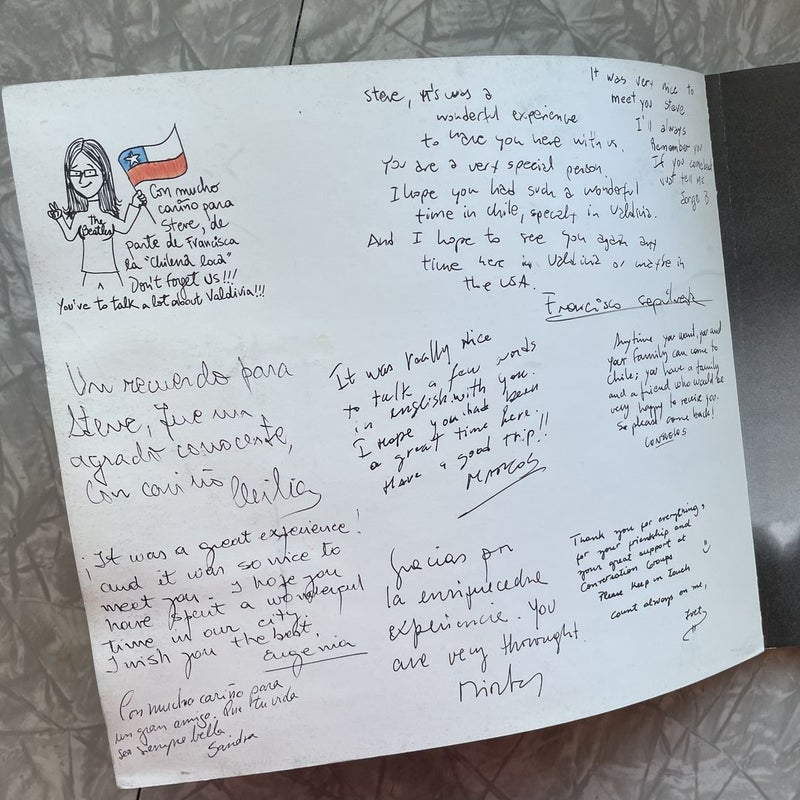 The
Beatles
Con mucho
cariño para
Steve, de
parte de Francisca
la "chilena loca"
Don't forget us!!!
You've to talk a lot about Valdivia!!!
Steve, it's was a
wonderful experience
to have you here with us.
You are a very special person.
I hope you had such a wonderful
time in chile, specialt in Valdivia.
And I hope to see you again any
time here in Valdivia or maybe in
the USA.
Francisco Sepulveda
It was very nice to
meet you Steve.
I'll always
Remember you
If you come back
just tell me
Jorge B.
Un recuerdo para
Steve, fue un
agrado conocerte,
con cariño Cecilia
It was really nice
to talk a few words
in english with you.
I hope you had been
a great time here.
Have a good trip!!
MARCOS
Anytime you want, you and
your family can come to
Chile; you have a family
and a friend who would be
very happy to receive you.
So please come back!
CONSUELOS
¡It was a great experience!
and it was so nice to
meet you. I hope you
have spent a wonderful
time in our city.
I wish you the best,
Eugenia
Gracias por
la enriquecedra
experiencie. You
are very throught.
Mirtha
Thank you for everything,
for your friendship and
your great support at
Conversation Groups
Please keep in touch
count always on me,
Ivet
Con mucho cariño para
un gran amigo. Que tu vida
sea siempre bella
Sandra